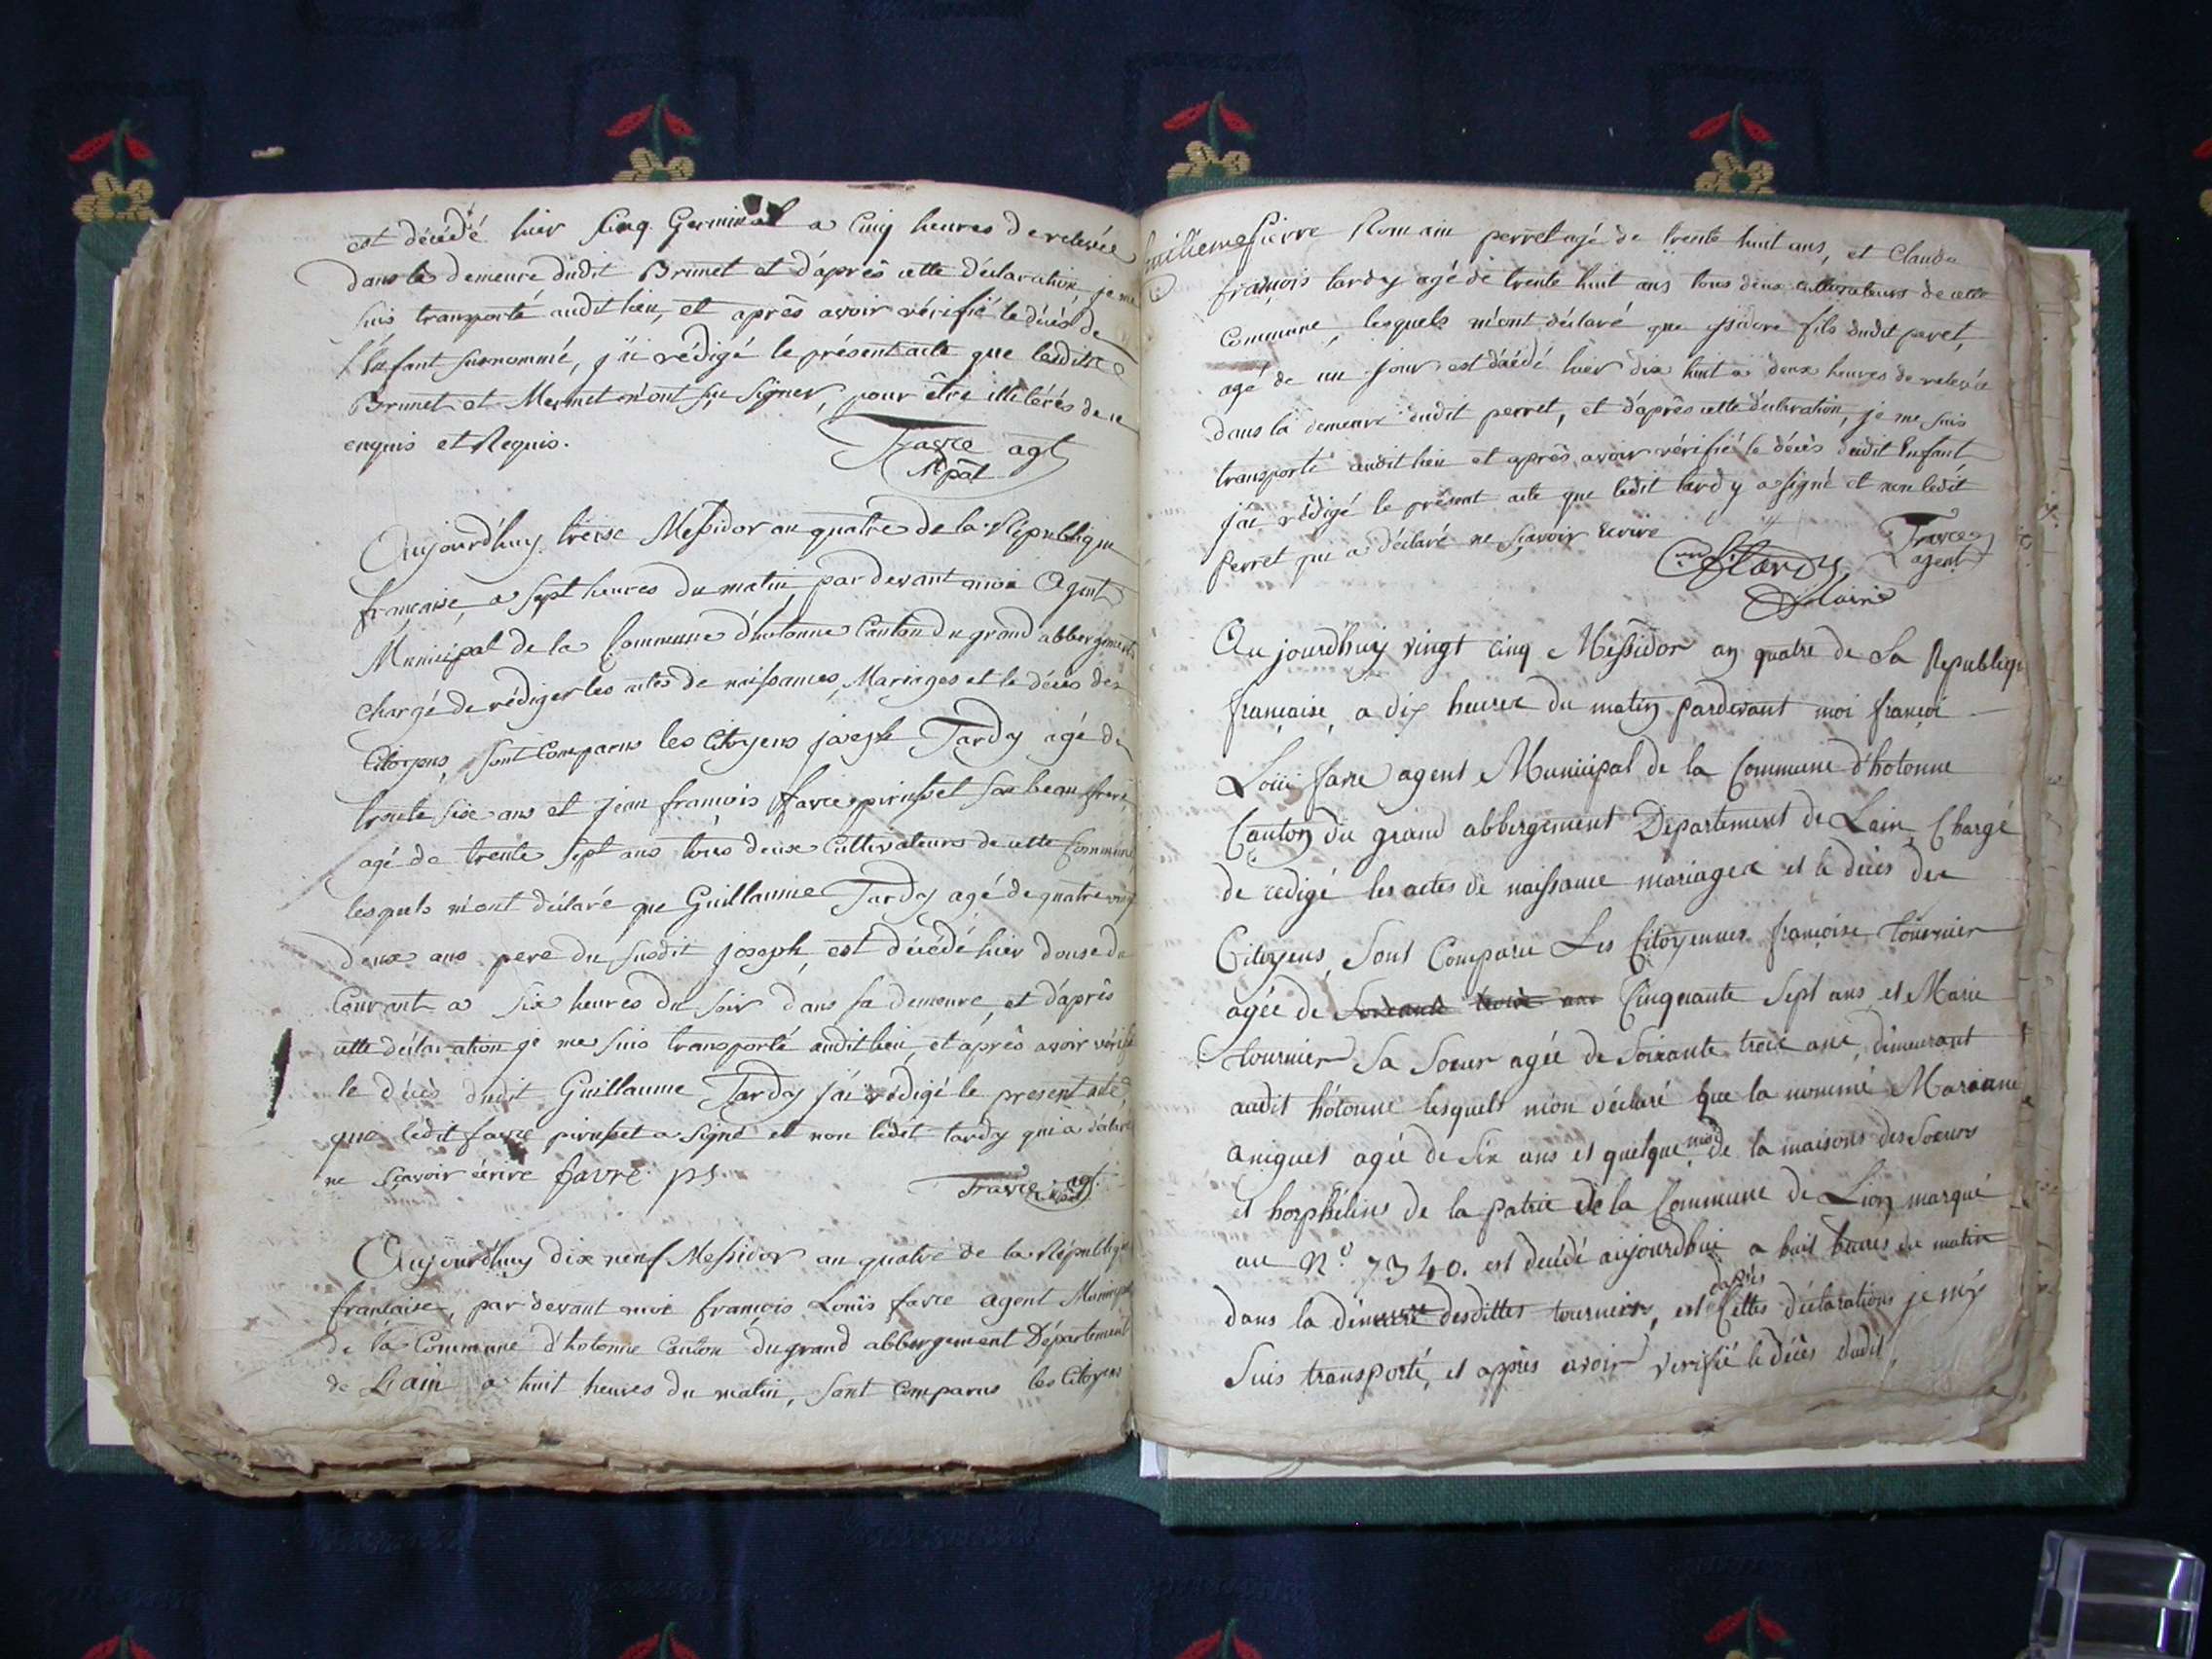 est décédé hier Cinq Germinal a Cinq heures de relevée
dans la demeure dudit Brunet et d'après cette déclaration je me
suis transporté audit lieu, et après avoir vérifié le décès de
l'Enfant surnommé, j'ai rédigé le présent acte que lesdits
Brunet et Mermet n'ont sçu signer, pour être illitérés de ce
enquis et Requis.
Favre agt
Mpal
Aujourd'huy treise Messidor an quatre de la République
française, a sept heures du matin, par devant moi Agent
Municipal de la Commune d'hotonne Canton du grand abbergement
chargé de rédiger les actes de naissances, Mariages et le décès des
Citoyens, sont Comparus les Citoyens joseph Tardy agé de
trente six ans et jean françois favre pirusset son beau frere,
agé de trente sept ans tous deux Cultivateurs de cette Commune,
lesquels m'ont déclaré que Guillaume Tardy agé de quatre vingt
deux ans pere du susdit joseph, est décédé hier douse du
Courant a six heures du soir dans sa demeure, et d'après
cette déclaration je me suis transporté audit lieu, et après avoir vérifié
le décès dudit Guillaume Tardy j'ai rédigé le present acte,
que ledit favre pirusset a signé et non ledit tardy qui a déclaré
ne sçavoir écrire favre ps.
Favre agt
Aujourd'huy dix neuf Messidor an quatre de la République
française, par devant moi françois Louis favre agent Municipal
de la Commune d'hotonne Canton du grand abbergement Département
de Lain a huit heures du matin, sont Comparus les Citoyens
huitieme Pierre Romain perret agé de trente huit ans, et Claude
françois tardy agé de trente huit ans tous deux cultivateurs de cette
Commune, lesquels m'ont déclaré que ysidore fils dudit peret,
agé de un jour est décédé hier dix huit a deux heures de relevée
dans la demeure dudit perret, et d'après cette déclaration, je me suis
transporté audit lieu et après avoir vérifié le décès dudit Enfant
j'ai rédigé le présent acte que ledit tardy a signé et non ledit
Perret qui a déclaré ne sçavoir Ecrire
Tardy
Favre
agent
Aujourdhuy vingt cinq Messidor an quatre de La Republiqu
française, a dix heures du matin pardevant moi françoi
Loüi favre agent Municipal de la Commune d'hotonne
Canton du grand abbergement Département de Lain, Chargé
de redigé les actes de naissance mariages et le décès des
Citoyens, Sont Comparu Les Citoyennes françoise tournier
agée de Soixante trois ans Cinquante Sept ans, et Marie
tournier Sa Soeur agée de Soixante trois ans, demeurant
audit hotonne lesquels mon déclaré que la nommé Marianne
aniguet agée de Six ans et quelque mois de la maisons des Soeurs
et horphélins de la patrie de la Commune de Lion marqué
au N.º 7340. est decédé aujourdhui a huit heures du matin
dans la demeure desdittes tourniers, est d'après Cettes déclarations je my
Suis transporté, et apprès avoir verifié le décès dudit